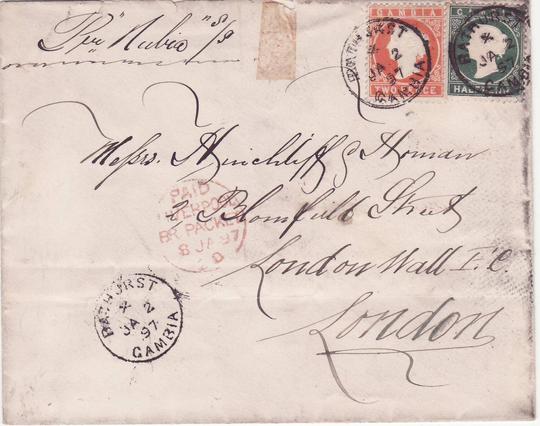 Per "Nubia" S/S
GAMBIA
TWO PENCE
HALF
BATHURST
X 2
JA
97
GAMBIA
BATHURST
X 2
JA
97
GAMBIA
Messrs. Hinchliff & Homan
2 Blomfield Street
London Wall E.C.
London
PAID
LIVERPOOL
BR. PACKET
8 JA 97
D
BATHURST
X 2
JA
97
GAMBIA